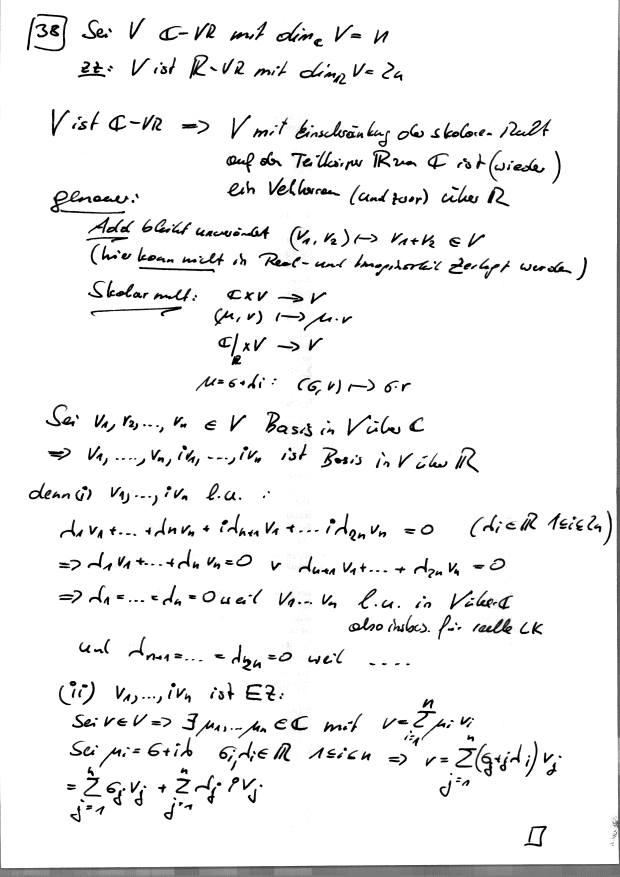 38 Sei V ℂ-VR mit dim_ℂ V = n
zz: V ist ℝ-VR mit dim_ℝ V = 2n
V ist ℂ-VR => V mit Einschränkung der skalaren Mult
auf den Teilkörper ℝ von ℂ ist (wieder)
ein Vektorraum (und zwar) über ℝ
genauer:
Add bleibt unverändert (v₁, v₂) ↦ v₁+v₂ ∈ V
(hier kann nicht in Real- und Imaginärteil zerlegt werden)
Skalarmult: ℂ×V → V
(μ, v) ↦ μ·v
ℂ|_ℝ ×V → V
μ=σ+λi : (σ, v) ↦ σ·v
Sei v₁, v₂, ..., vₙ ∈ V Basis in V über ℂ
=> v₁, ...., vₙ, iv₁, ..., ivₙ ist Basis in V über ℝ
denn (i) v₁, ..., ivₙ l.u. :
λ₁v₁+...+λₙvₙ + iλₙ₊₁v₁+... iλ₂ₙvₙ = 0 (λi ∈ ℝ 1≤i≤2n)
=> λ₁v₁+...+λₙvₙ=0 ∨ λₙ₊₁v₁+...+λ₂ₙvₙ = 0
=> λ₁=...=λₙ=0 weil v₁...vₙ l.u. in V über ℂ
also insbes. für reelle LK
und λₙ₊₁=...=λ₂ₙ=0 weil ....
(ii) v₁, ..., ivₙ ist EZ:
Sei v∈V => ∃ μ₁,...μₙ ∈ ℂ mit v = Σ_{i=1}^{n} μi vi
Sei μi = σ+iλ σi, λi ∈ ℝ 1≤i≤n => v = Σ_{j=1}^{n} (σj+iλi) vj
= Σ_{j=1}^{n} σj vj + Σ_{j=1}^{n} λj i vj
□